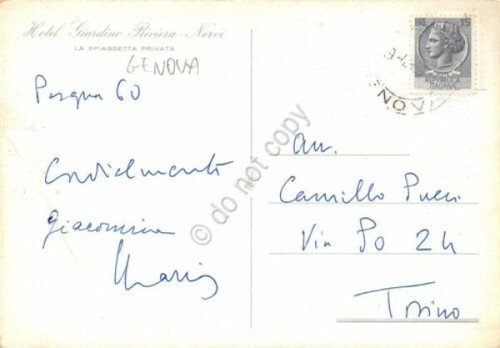 Hotel Giardino Riviera - Nervi
LA SPIAGGETTA PRIVATA
GENOVA
Pasqua 60
Cordialmente
Giacomina
Mario
15
REPUBBLICA
ITALIANA
GENOVA
Avv.
Camillo Pucci
Via Po 24
Torino
© do not copy